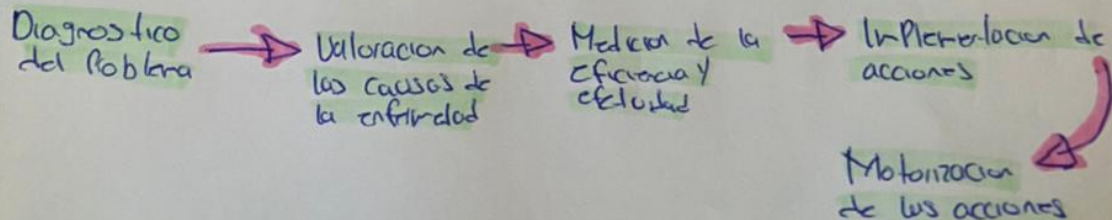 Diagnostico
del Poblema
Valoracion de
las causas de
la enfirmedad
Medicion de la
eficiencia y
efectividad
Implementacion de
acciones
Motorizacion
de las acciones